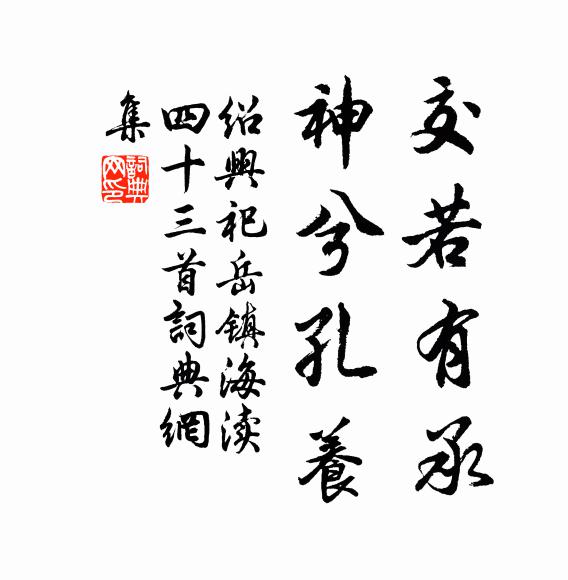 交若有承
神兮孔養
绍興祀岳镇海渎
四十三首詞典網
集
詞典网印